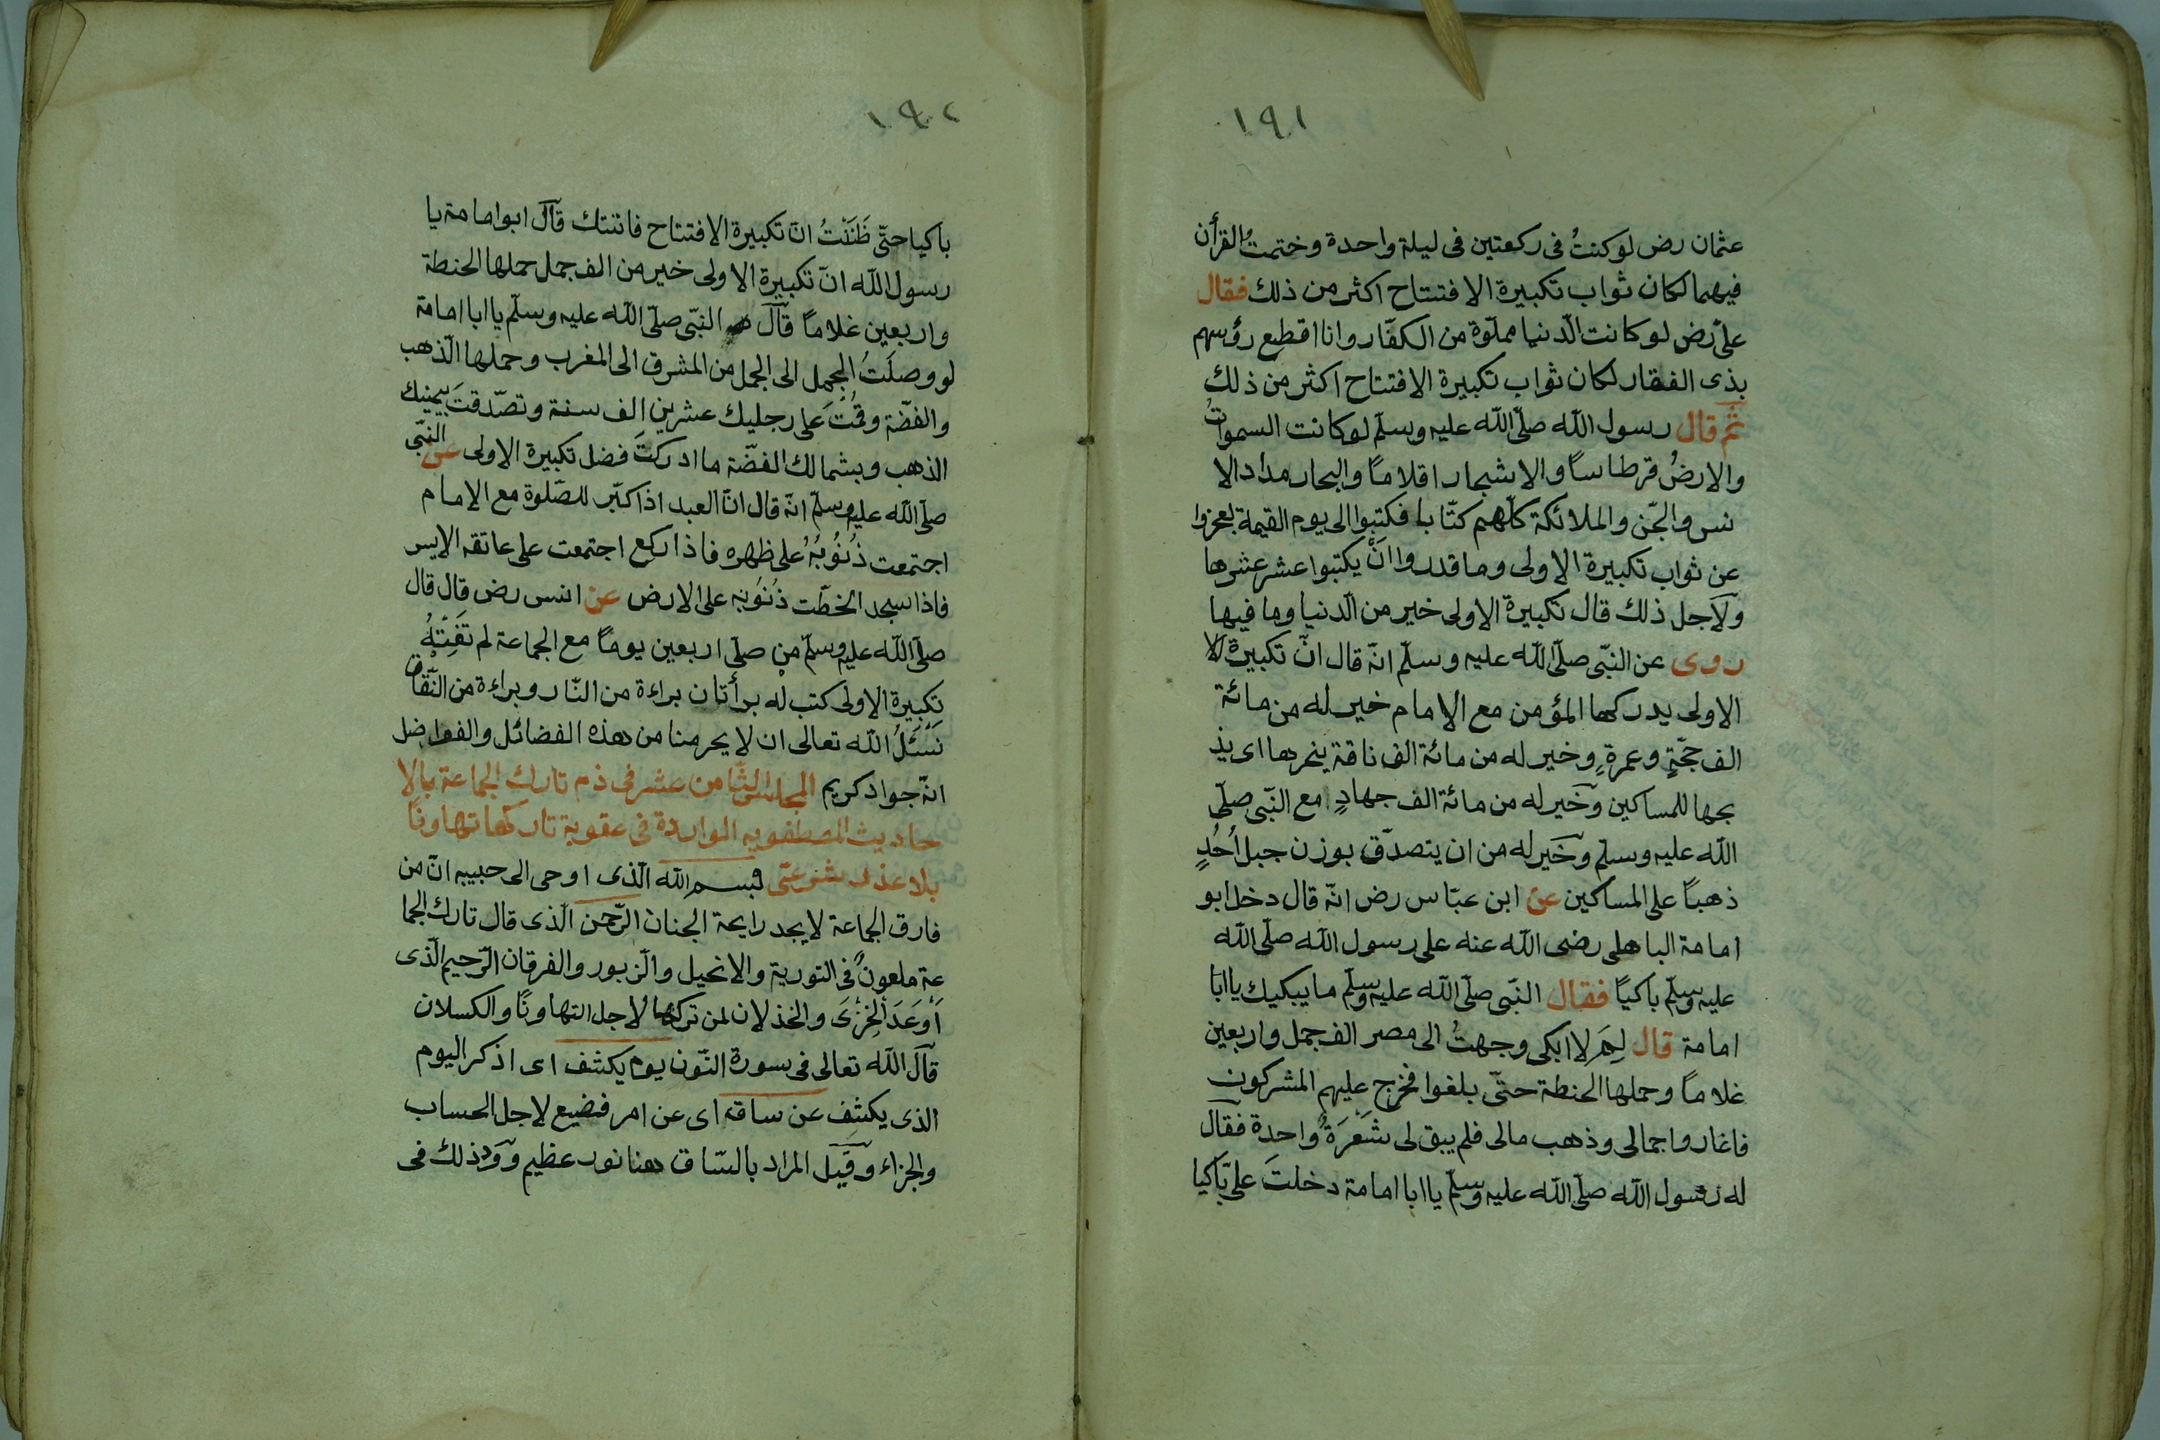 ١٩١
عثمان رض لو كنتُ فى ركعتين فى ليلة واحدة وختمتُ القرأن
فيهما لكان ثواب تكبيرة الافتتاح اكثر من ذلك فقال
علىّ رض لو كانت الدّنيا مملّوة من الكفّار وانا اقطع رؤسهم
بذى الفقار لكان ثواب تكبيرة الافتتاح اكثر من ذلك
ثمّ قال رسول اللّه صلّى اللّه عليه وسلّم لو كانت السموات
والارضُ قرطاسًا والاشجار اقلامًا والبحار مدادا لا
نس والجّن والملائكة كلّهم كتّابا فكتبوا الى يوم القيمة لعجزوا
عن ثواب تكبيرة الاولى وما قدروا انْ يكتبوا عشر عشرها
ولاجل ذلك قال تكبيرة الاولى خير من الدّنيا وما فيها
روى عن النبّى صلّى اللّه عليه وسلّم انّه قال انّ تكبيرة الا
الاولى يدركها المؤمن مع الامام خير له من مائة
الف حجّةٍ وعمرةٍ وخير له من مائة الف ناقة ينحرها اى يذ
بحها للمساكين وخير له من مائة الف جهادٍ مع النبّى صلّى
اللّه عليه وسلّم وخير له من ان يتصدّق بوزن جبل اُحُدٍ
ذهبًا على المساكين عن ابن عبّاس رض انّه قال دخل ابو
امامة الباهلى رضى اللّه عنه على رسول اللّه صلّى اللّه
عليه وسلّم باكيًا فقال النبّى صلّى اللّه عليه وسلّم ما يبكيك يا ابا
امامة قال لِمَ لا ابكى وجهتُ الى مصر الف جمل واربعين
غلامًا وحملها الحنطة حتّى بلغوا فخرج عليهم المشركون
فاغاروا جمالى وذهب مالى فلم يبق لى شَعْرَةٌ واحدة فقال
له رسول اللّه صلّى اللّه عليه وسلّم يا ابا امامة دخلتَ علىّ باكيا
١٩٢
باكيا حتّى ظَنَنْتُ انّ تكبيرة الافتتاح فاتتك قال ابو امامة يا
رسول اللّه انّ تكبيرة الاولى خير من الف جمل حملها الحنطة
واربعين غلامًا قال النبّى صلّى اللّه عليه وسلّم يا ابا امامة
لو وصلَتُ الجمل الى الجمل من المشرق الى المغرب وحملها الذّهب
والفضّة وقُمْتَ على رجليك عشرين الف سنة وتصّدقتَ بيمينك
الذهب وبشمالك الفضّة ما ادركتَ فضل تكبيرة الاولى عن النبّى
صلّى اللّه عليه وسلّم انّه قال انّ العبد اذا كبّر للصّلوة مع الامام
اجتمعت ذُنُوبُهُ على ظهره فاذا ركع اجتمعت على عاتقه الايسر
فاذا سجد انخطّت ذُنُوبُه على الارض عن انس رض قال قال
صلّى اللّه عليه وسلّم من صلّى اربعين يومًا مع الجماعة لم تَفُتْهُ
تكبيرة الاولى كتب له برأتان براءة من النّار وبراءة من النّفاق
نَسْئَلُ اللّه تعالى ان لا يحرمنا من هذه الفضائل والفواضل
انّه جواد كريم المجلس الثّامن عشر فى ذم تارك الجماعة بالا
حاديث المصطفويه الواردة فى عقوبة تاركها تهاونًا
بلا عذر شرعىّ فبسم اللّه الّذى اوحى الى حبيبه انّ من
فارق الجماعة لا يجد رايحة الجنان الرّحمن الّذى قال تارك الجما
عة ملعونٌ فى التورية والانجيل والزّبور والفرقان الرّحيم الّذى
اَوْعَدَ الخِزْىَ والخذلان لمن تركها لاجل التهاونًا والكسلان
قال اللّه تعالى فى سورة النّون يوم يكشف اى اذكر اليوم
الذى يكشف عن ساق اى عن امر فضيع لاجل الحساب
والجزاء وقيل المراد بالسّاق هنا نور عظيم وورد ذلك فى